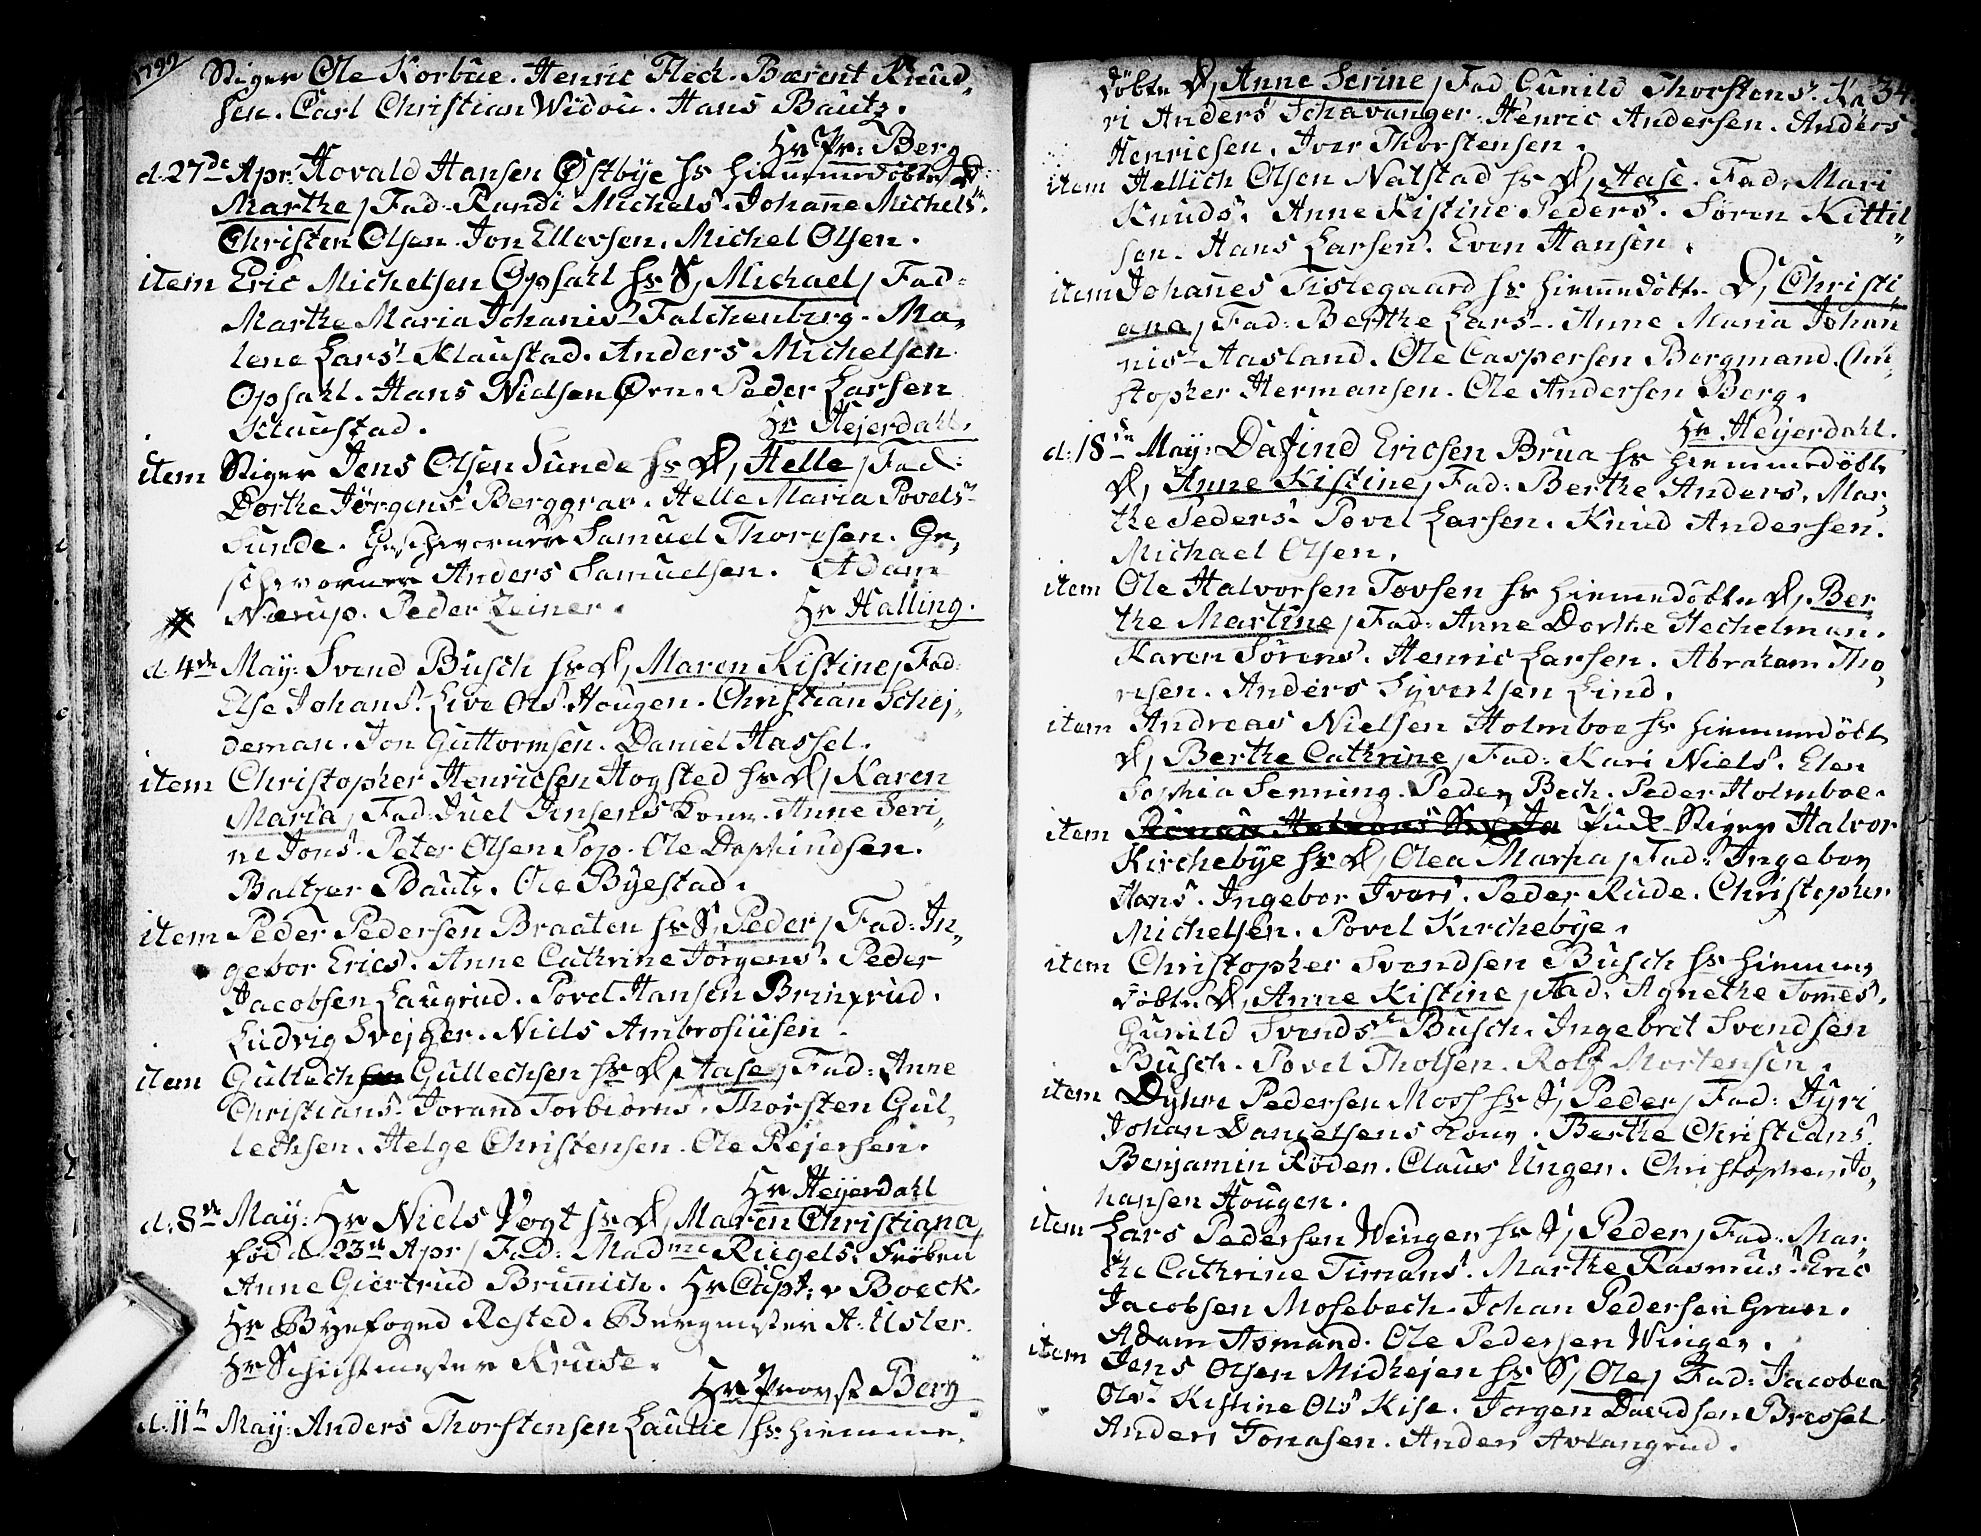 1792
Stiger Ole Korbûe. Henric Fleck. Bærent Knud-
sen. Carl Christian Widou. Hans Bautz.
Hr Pr: Berg
d. 27de Apr: Hovald Hansen Østbÿe hs hiemmedøbte D:
Marthe / Fad: Randi Michels. Johane Michels.
Christen Olsen. Jon Ellevsen. Michel Olsen.
item Eric Michelsen Opsahl hs S, Michael / Fad:
Marthe Maria Johanis Falchenberg. Ma-
lene Lars Klaustad. Anders Michelsen
Opsahl. Hans Nielsen Ørn. Peder Larsen
Klaustad. Hr Heÿerdahl.
item Stiger Jens Olsen Sunde hs D, Helle / Fad:
Dorthe Jørgens Berggrav. Helle Maria Povels
Sunde. Geschworner Samuel Thoresen. Ge-
schworner Anders Samuelsen. Adam
Nærup. Peder Zeiner. Hr Halling.
d. 4de May: Svend Busch hs D, Maren Kistine / Fad:
Else Johans. Live Ols Hougen. Christian Schej-
deman. Jon Guttormsen. Daniel Hassel.
item Christopher Henricsen Hogsted hs D, Karen
Maria / Fad: Juel Jensens Kone. Anne Seri-
ne Jons. Peter Olsen Pop. Ole Daphindsen.
Baltzer Bautz. Ole Bÿestad.
item Peder Pedersen Braaten hs S, Peder / Fad: In-
gebor Erics. Anne Cathrine Jørgens. Peder
Jacobsen Laugrud. Povel Hansen
Ludvig Svejger. Niels Ambrosiusen.
item Gullech Gullechsen hs D, Aase / Fad: Anne
Christians. Jorand Torbiørns. Thorsten Gul-
lechsen. Helge Christensen. Ole Rejersen.
Hr Heÿerdahl
d. 8de May: Hr Niels Vogt hs D, Maren Christiana,
fød d. 23de Apr / Fad: Madme Riegels. Frøken
Anne Giertrud Brünnich. Hr Capt: v Boeck.
Hr Bÿefoged Rested. Bergmester A: Usler.
Hr Schichtmester Kruse.
Hr Provst Berg
d. 11te May: Anders Thorstensen hs hiemme-
døbte D, Anne Serine / Fad Gunild Thorstens. Ka 34.
ri Anders Schavanger. Henric Andersen. Anders
Henricsen. Iver Thorstensen.
item Hellich Olsen Nalstad hs D, Aase. Fad: Mari
Knuds. Anne Kistine Peders. Søren Kittil-
sen. Hans Larsen. Even Hansen.
item Johanes Tislegaard hs hiemmedøbte D, Christi
ana / Fad: Berthe Lars. Anne Maria Johan
nis Aasland. Ole Caspersen Bergmand. Chri-
stopher Hermansen. Ole Andersen Berg.
Hr Heÿerdahl.
d. 18de May: Dafind Ericsen Brua hs hiemmedøbte
D, Anne Kistine / Fad: Berthe Anders. Mar-
the Peders. Povel Larsen. Knud Andersen.
Michael Olsen.
item Ole Halvorsen Tovsen hs hiemmedøbte D, Ber
the Martine / Fad: Anne Dorthe Hechelman.
Karen Sørens. Henric Larsen. Abraham Tho-
resen. Anders Syvertsen Lind.
item Andreas Nielsen Holmboe hs hiemmedøbte
D, Berthe Cathrine / Fad: Kari Niels. Elen
Sophia Senning. Peder Bech. Peder Holmboe.
item Puck-Stiger Halvor
Kirchebÿe hs D, Olea Maria / Fad: Ingebor
Hans. Ingebor Ivars. Peder Rude. Christopher
Michelsen. Povel Kirchebÿe.
item Christopher Svendsen Busch hs hiemme
døbte D, Anne Kistine / Fad: Agnethe Tommes.
Gunild Svends Busch. Ingebret Svendsen
Busch. Povel Tholsen. Rolf Mortensen.
item Dÿhre Pedersen Moss hs S, Peder / Fad: Jÿri
Johan Danielsens Kone. Berthe Christians.
Benjamin Røden. Claus Ungen. Christopher Jo-
hansen Hougen.
item Lars Pedersen Winger hs S, Peder / Fad: Mar-
the Cathrine Timans. Marthe Rasmus. Eric
Jacobsen Mosebech. Johan Pedersen Gran.
Adam Asmand. Ole Pedersen Winger.
item Jens Olsen Midhejen hs S, Ole / Fad: Jacobea
Ols. Kistine Ols Kise. Jørgen Davidsen Bressel.
Anders Jonasen. Anders Avlangrud.